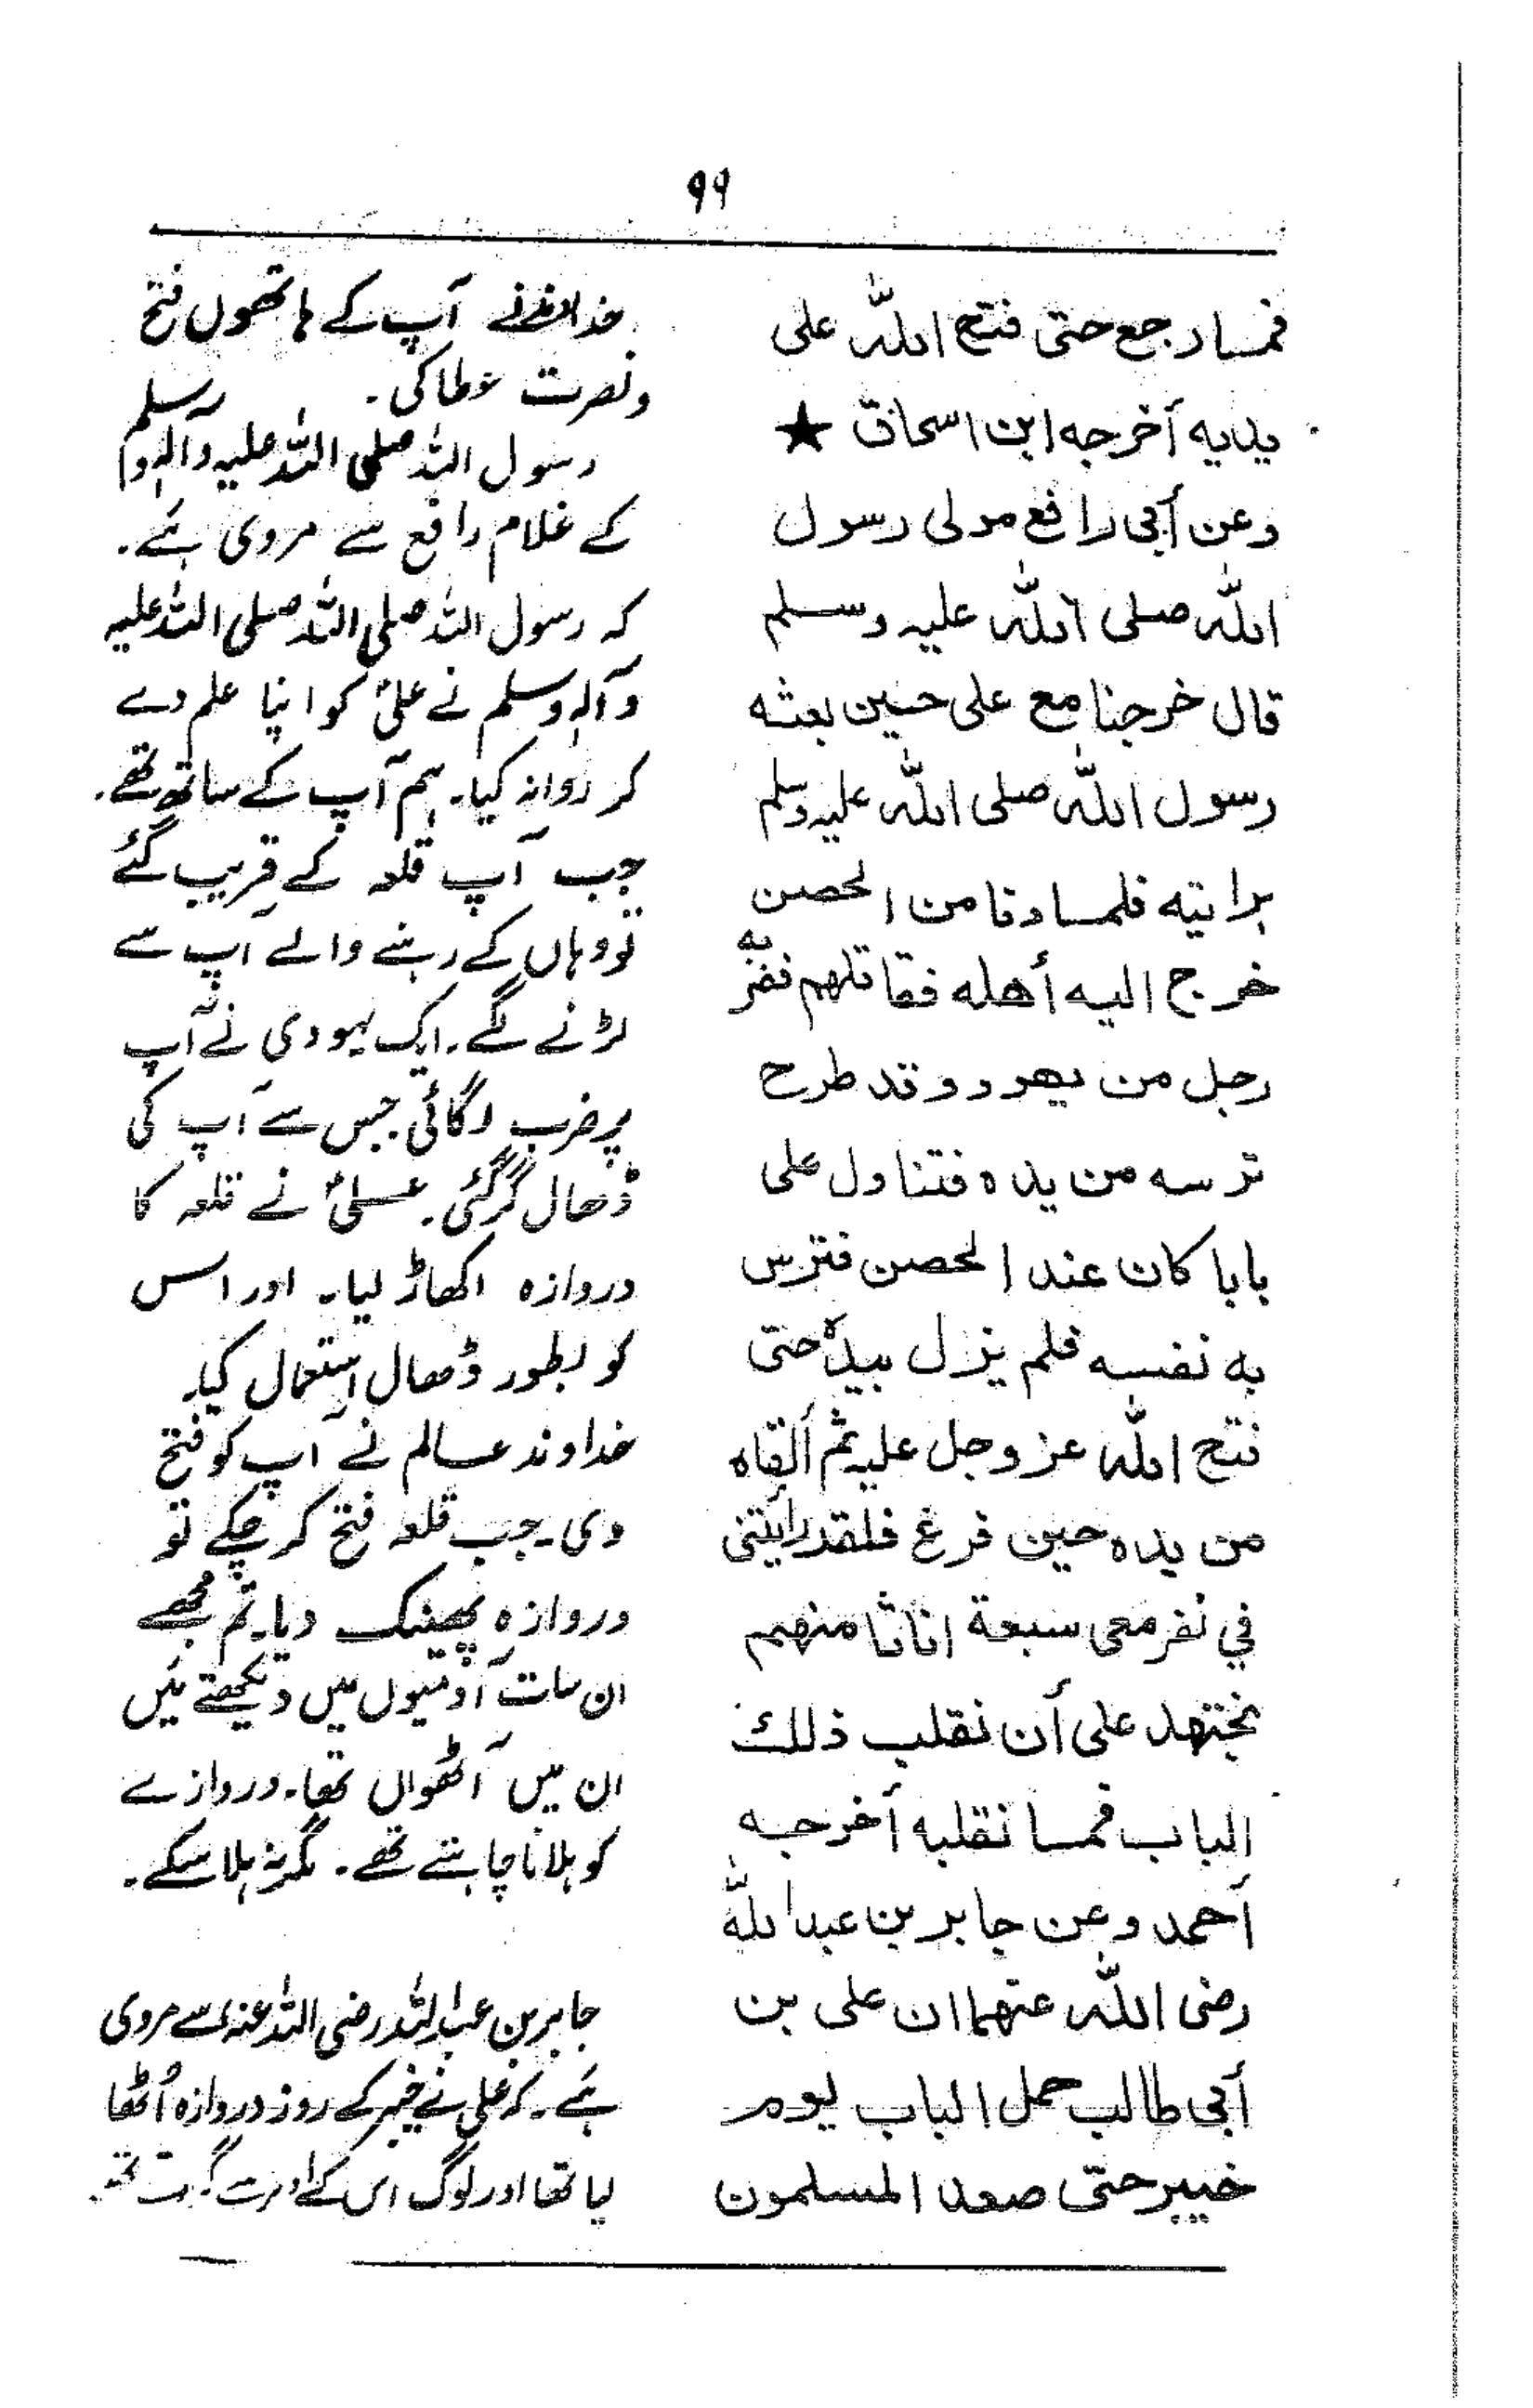 ۹۹
فمسا رجع حتى فتح الله على
يديه أخرجه ابن اسحاق ★
وعن أبى رافع مولى رسول
الله صلى الله عليه وسلم
قال خرجنا مع على حين بعثه
رسول الله صلى الله عليه وسلم
برايته فلمسا دنا من الحصن
خرج اليه أهله فقاتلهم فضربه
رجل من يهود و قد طرح
ترسه من يده فتناول على
بابا كان عند الحصن فترس
به نفسه فلم يزل بيده حتى
فتح الله عز وجل عليه ثم ألقاه
من يده حين فرغ فلقد رأيتنى
في نفر معى سبعة انا ثامنهم
نجتهد على أن نقلب ذلك
الباب فمسا نقلبه أخرجه
أحمد وعن جابر بن عبد الله
رضى الله عنهما ان على بن
أبى طالب حمل الباب يوم
خيبر حتى صعد المسلمون
آپ کے ہاتھوں فتح
ونصرت عطا کی۔
رسول اللہ صلی اللہ علیہ وآلہٖ وسلم
کے غلام رافع سے مروی ہے۔
کہ رسول اللہ صلی اللہ صلی اللہ علیہ
وآلہٖ وسلم نے علیؑ کو اپنا علم دے
کر روانہ کیا۔ ہم آپ کے ساتھ تھے۔
جب آپ قلعہ کے قریب گئے
تو وہاں کے رہنے والے آپ سے
لڑنے لگے۔ ایک یہودی نے آپ
پر ضرب لگائی جس سے آپ کی
ڈھال گرگئی۔ علیؑ نے قلعہ کا
دروازہ اکھاڑ لیا۔ اور اس
کو بطور ڈھال استعمال کیا۔
خداوند عالم نے آپ کو فتح
دی۔ جب قلعہ فتح کر چکے تو
دروازہ پھینک دیا۔ تم مجھے
ان سات آدمیوں میں دیکھتے ہیں
ان میں آٹھواں تھا۔ دروازے
کو ہلانا چاہتے تھے۔ مگر نہ ہلا سکے۔
جابر بن عبداللہ رضی اللہ عنہ سے مروی
ہے۔ کہ علی نے خیبر کے روز دروازہ اُٹھا
لیا تھا اور لوگ اس کے